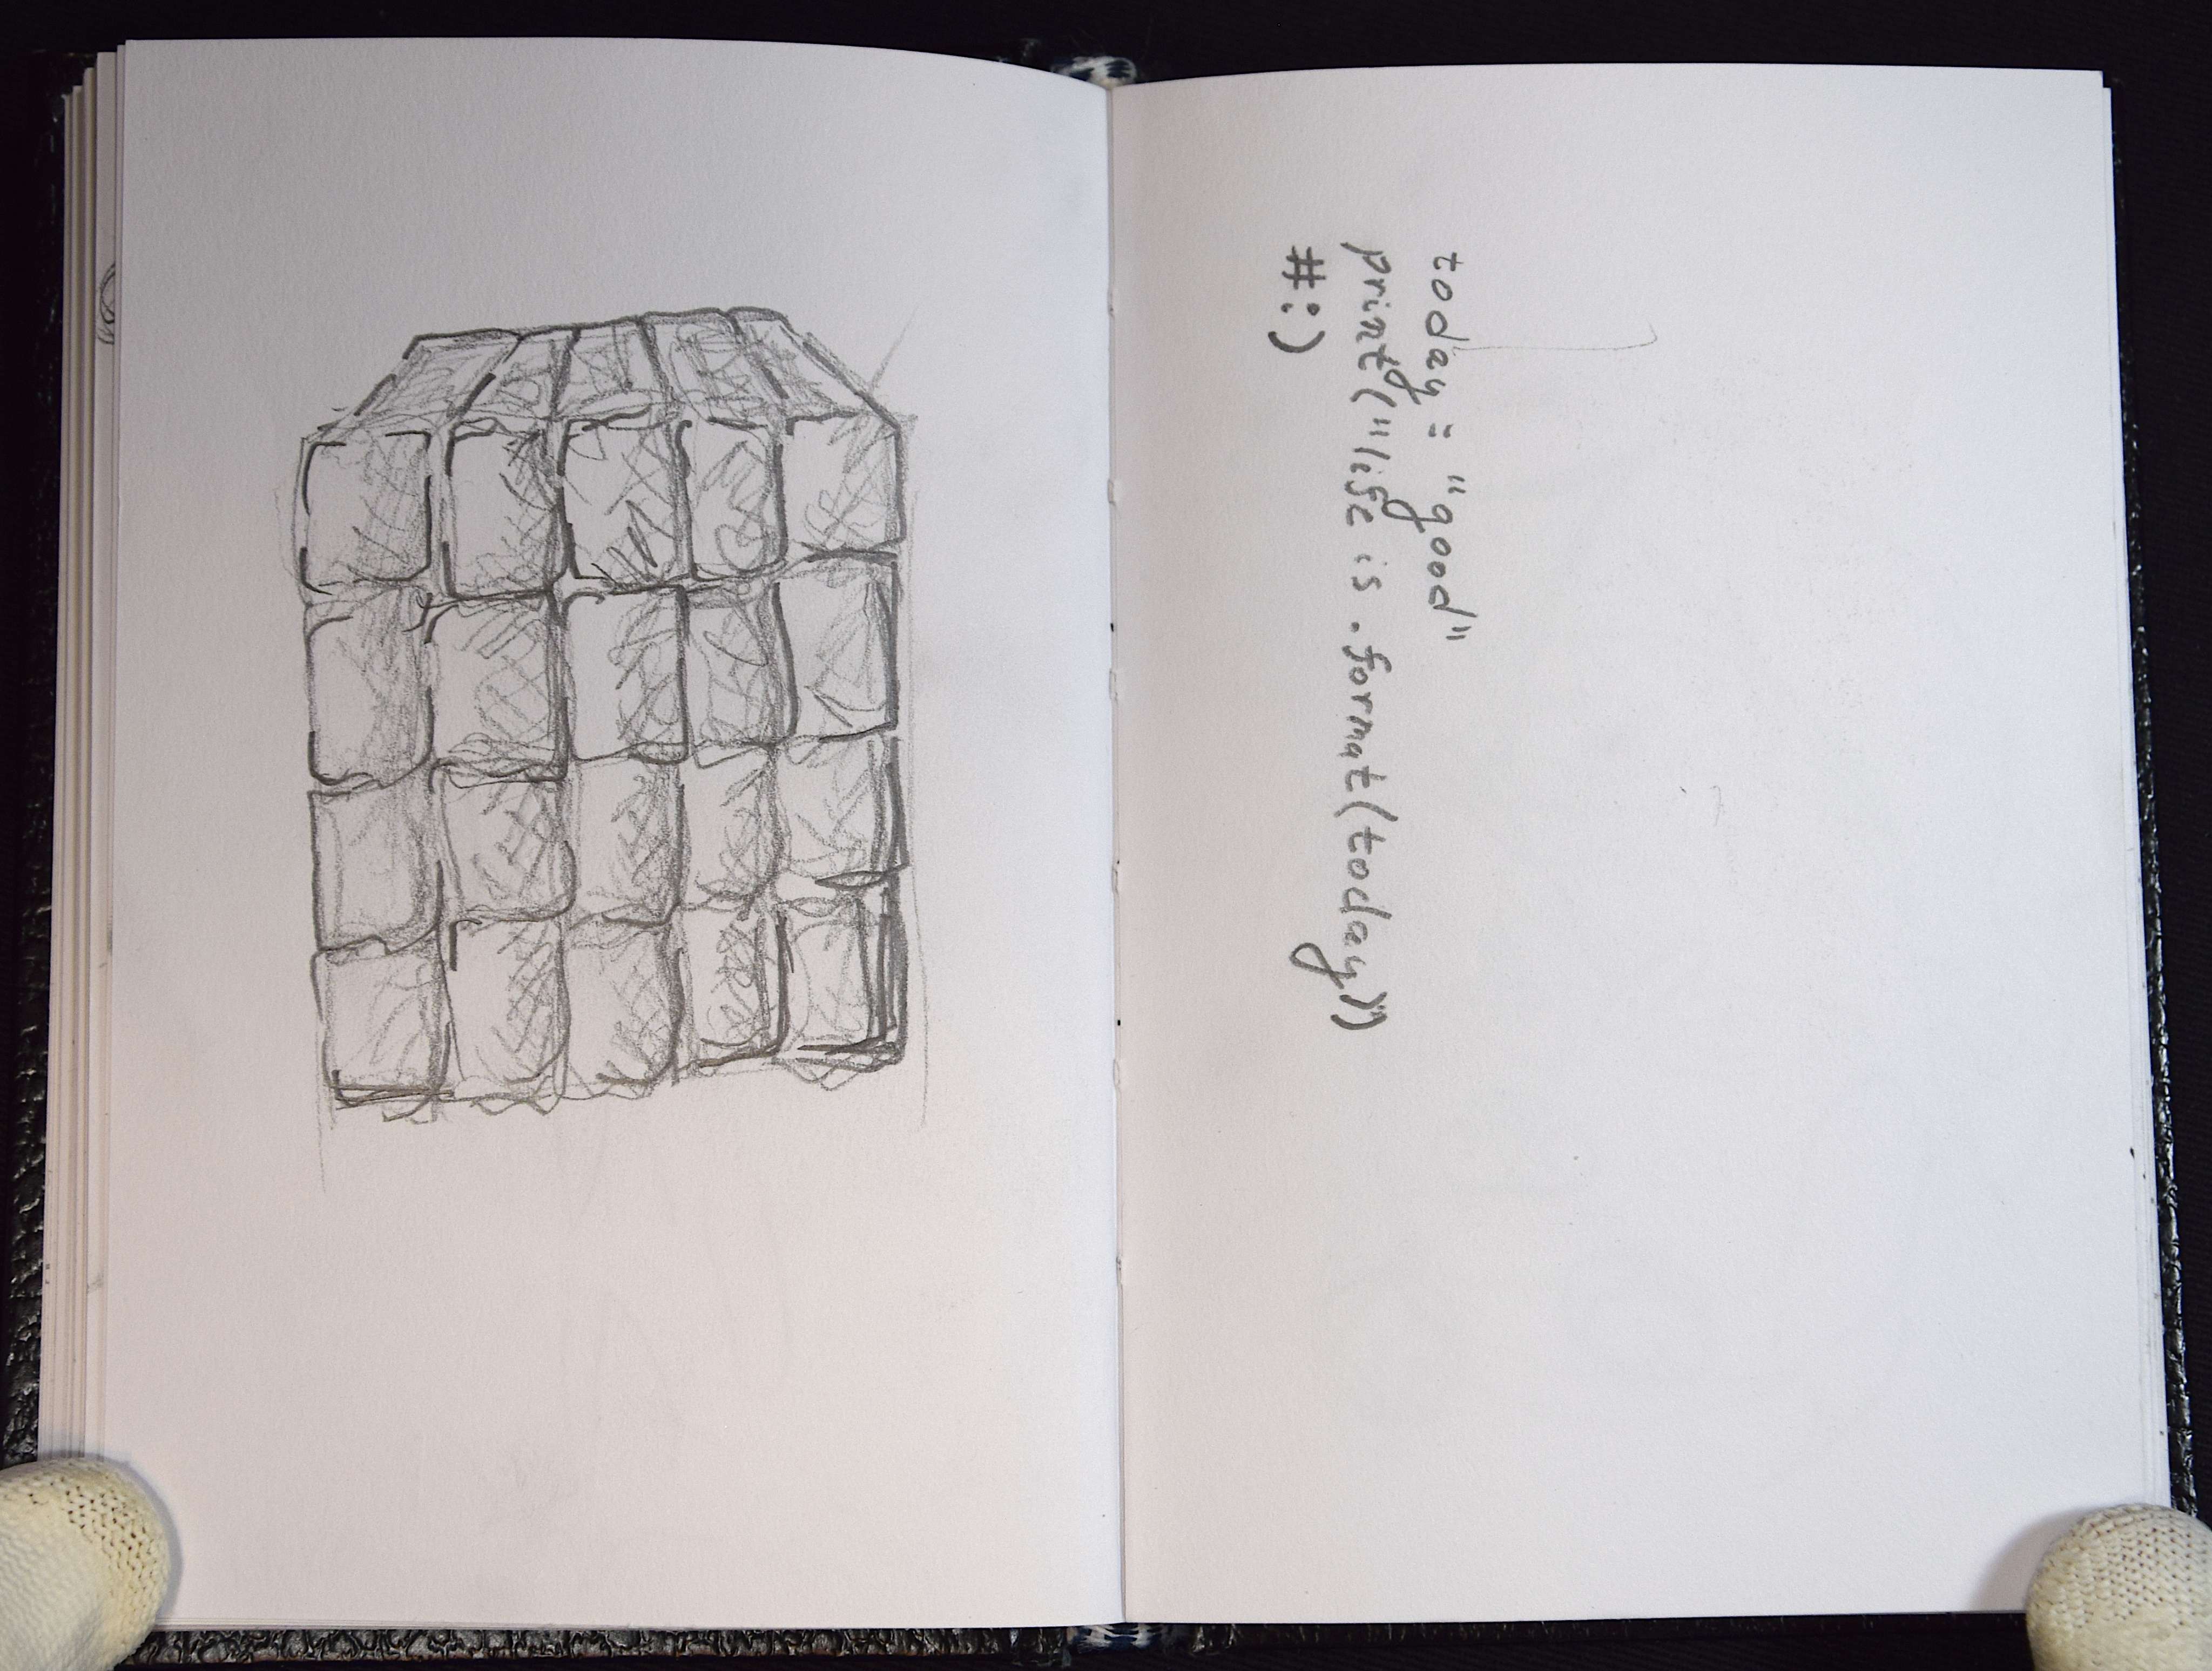 today = "good"
print("life is .format(today)")
#:)